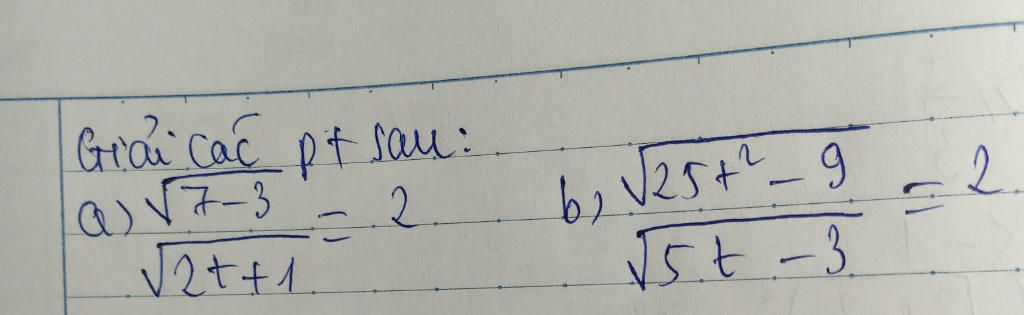 Giải các pt sau:
a) √(7-3) / √(2t+1) = 2 b) √(25t² - 9) / √(5t - 3) = 2